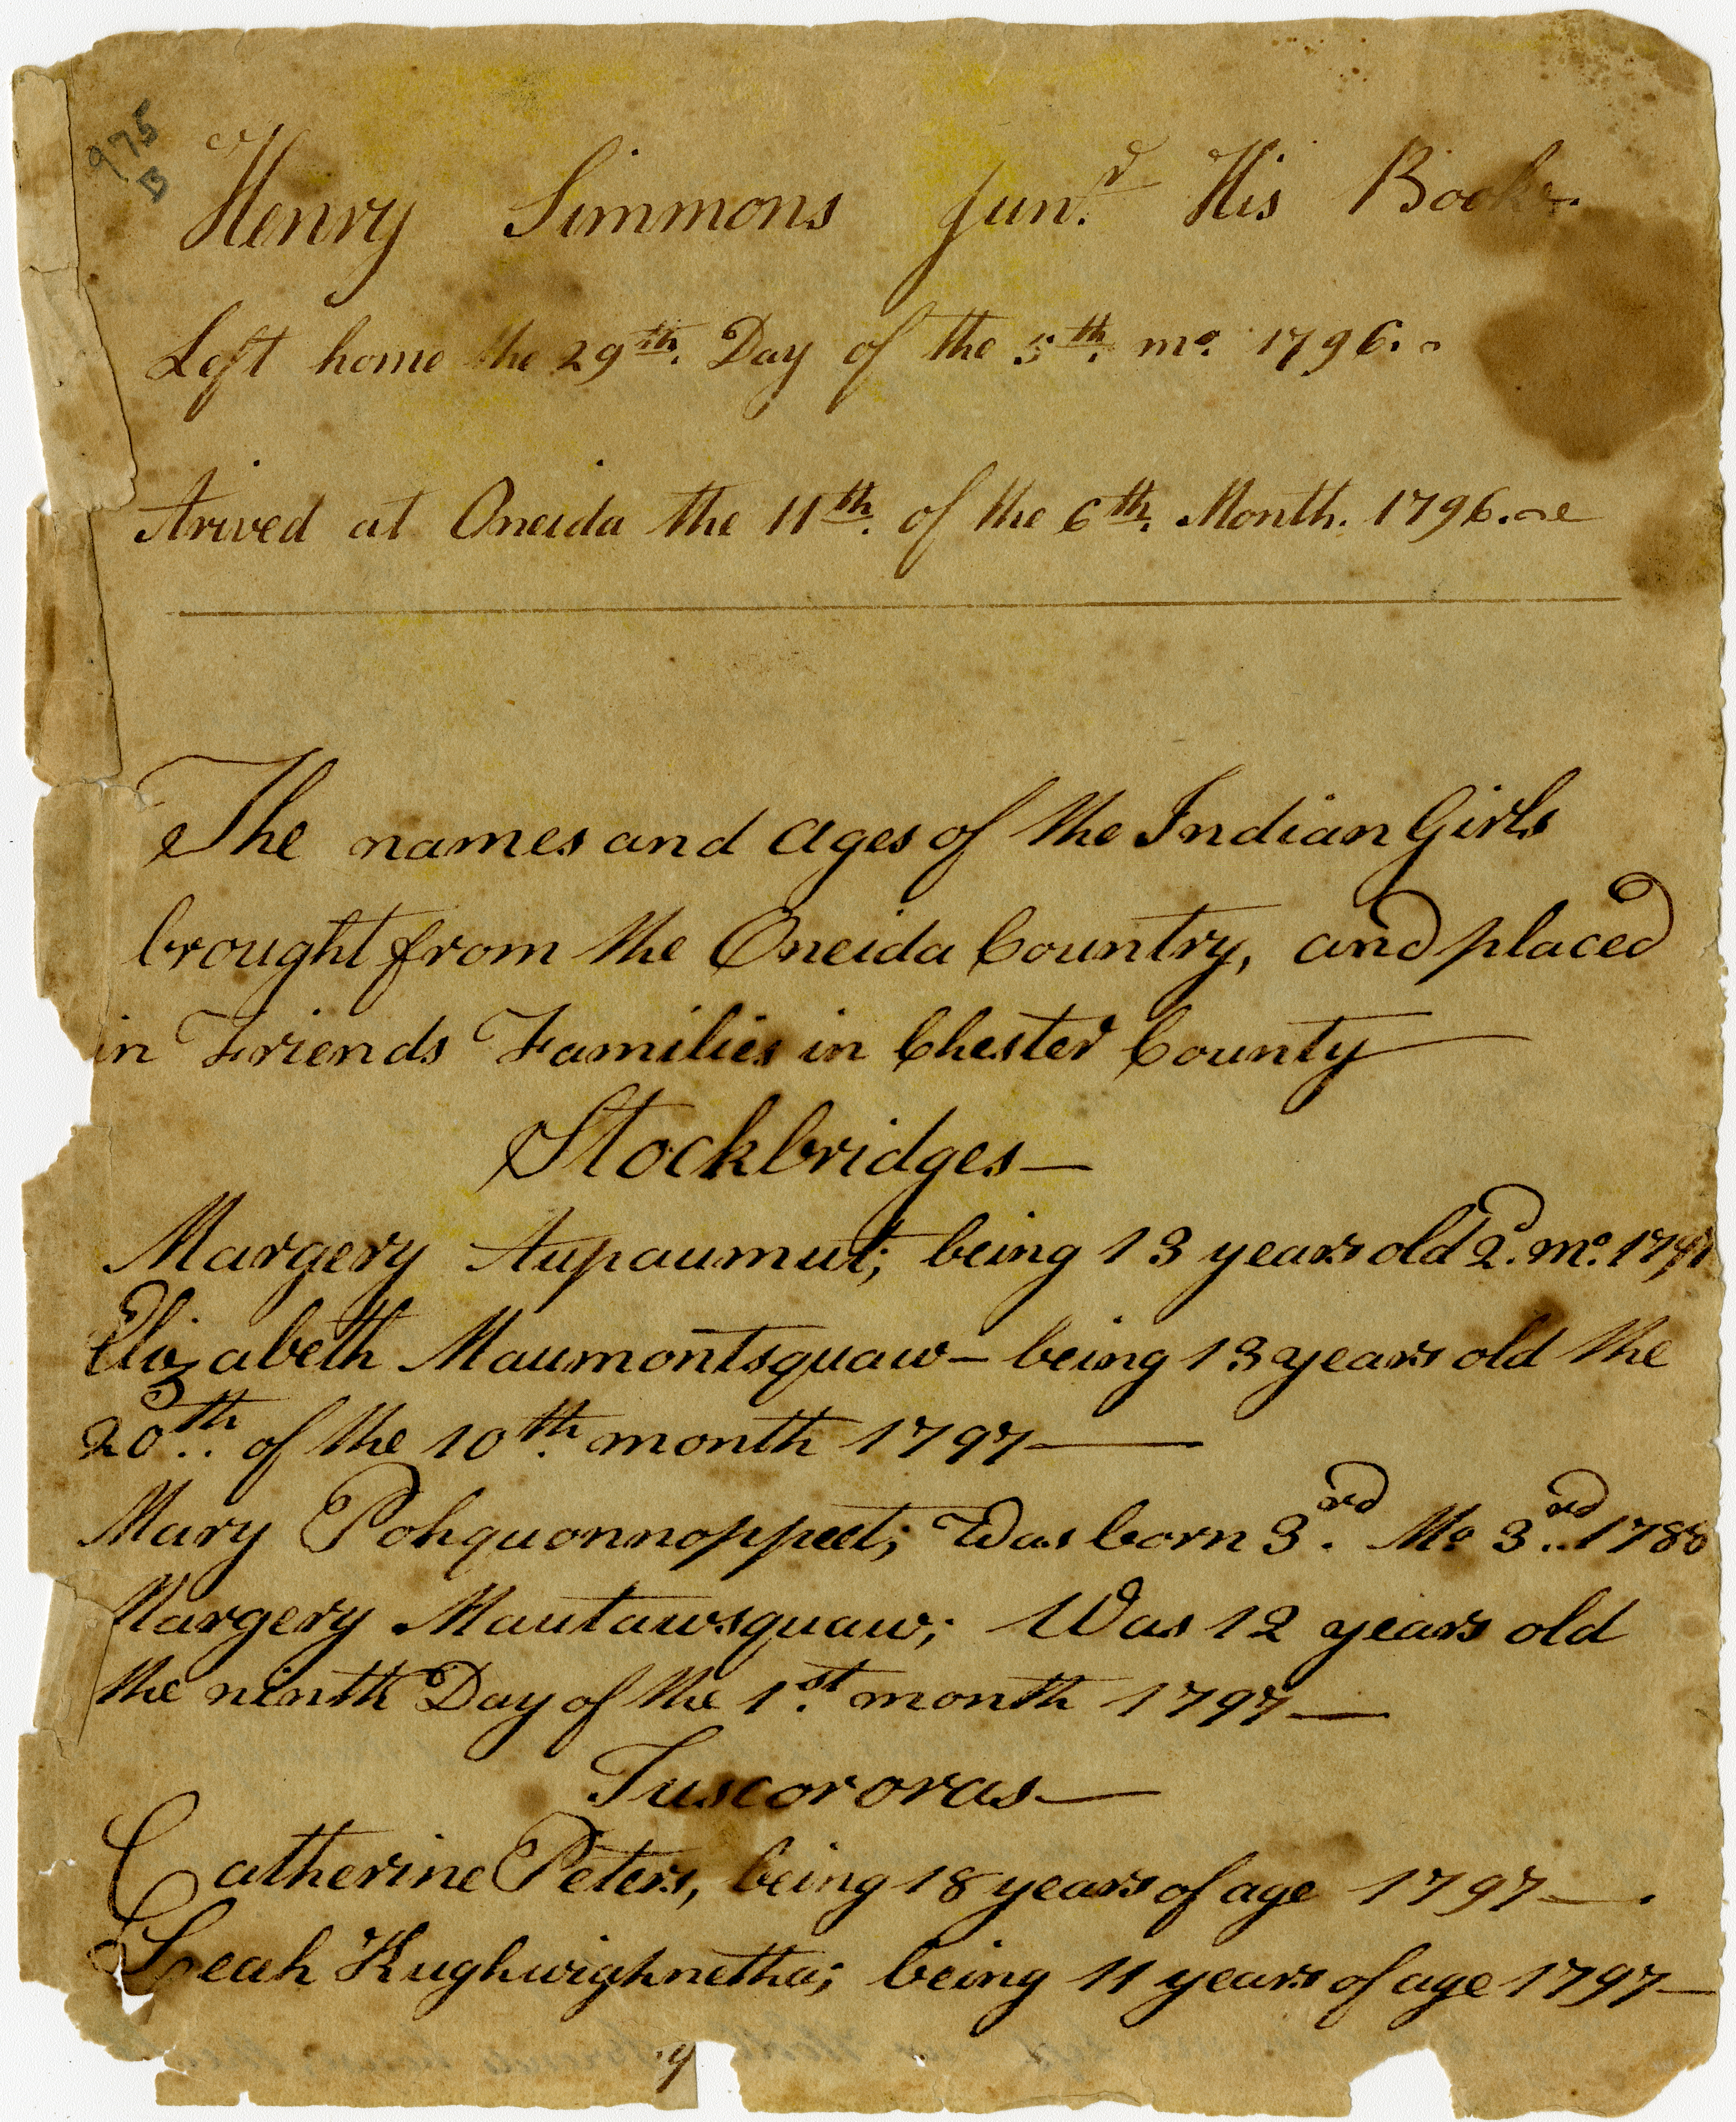 975
B
Henry Simmons Junr. His Book.
Left home the 29th. Day of the 5th. mo. 1796.
Arived at Oneida the 11th. of the 6th. Month. 1796.
The names and ages of the Indian Girls
brought from the Oneida Country, and placed
in Friends Families in Chester County
Stockbridges—
Margery Aupaumut; being 13 years old 2d. mo. 1797
Elizabeth Maumontsquaw— being 13 years old the
20th. of the 10th. month 1797—
Mary Pohquonnoppeet; Was born 3rd. Mo 3rd. 1788
Margery Mautawsquaw; Was 12 years old
the ninth Day of the 1st. month 1797—
Tuscororas—
Catherine Peters, being 18 years of age 1797—.
Leah Kughwighnetha; being 11 years of age 1797—